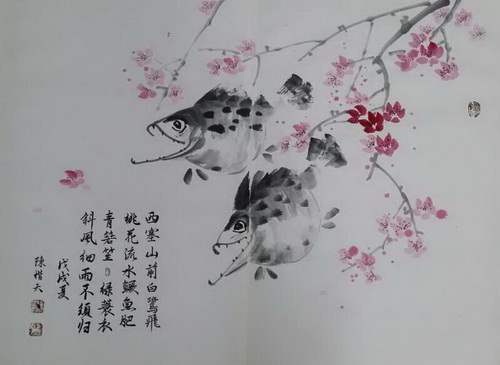 西塞山前白鷺飛
桃花流水鱖魚肥
青箬笠 绿蓑衣
斜風细雨不須归
戊戌夏
陳 天